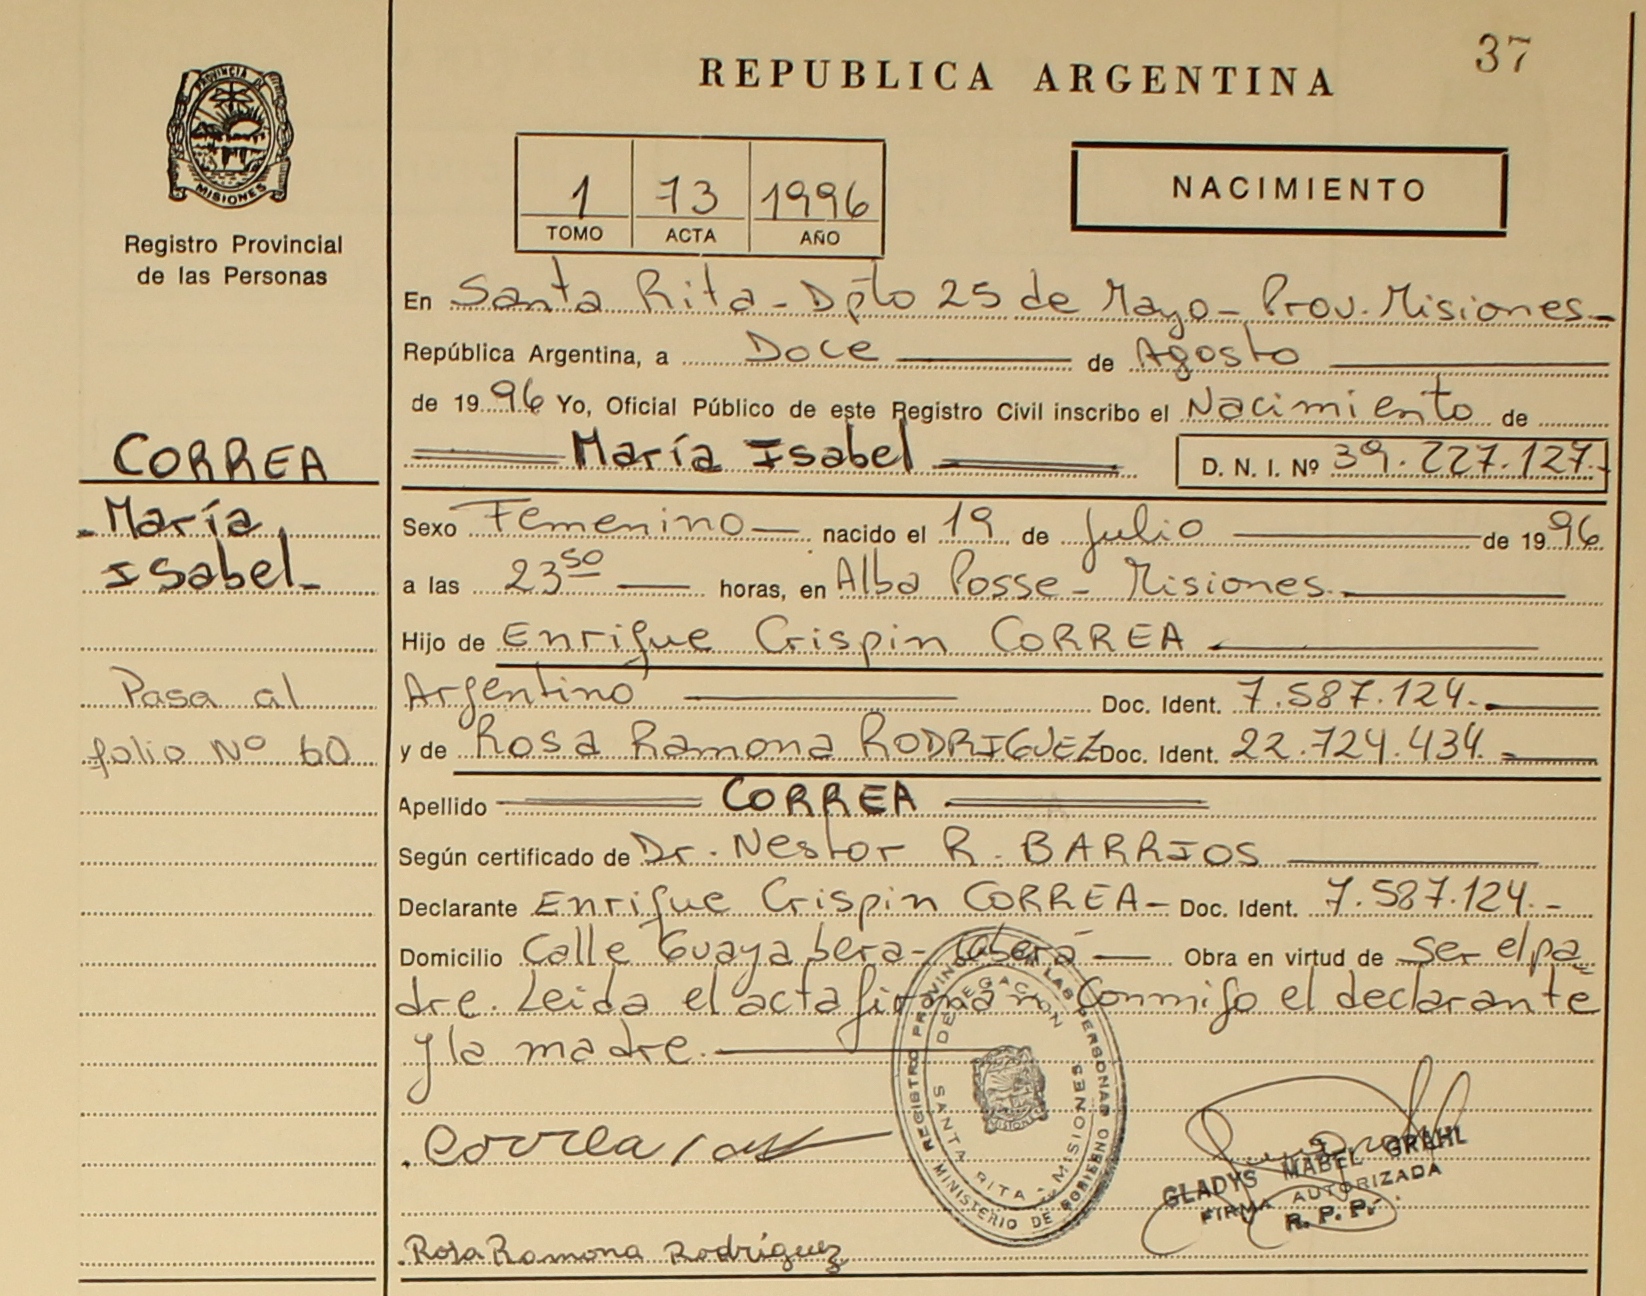 37
REPUBLICA ARGENTINA
PROVINCIA DE
MISIONES
Registro Provincial
de las Personas
1 73 1996
TOMO ACTA AÑO
NACIMIENTO
En Santa Rita - Dpto 25 de Mayo - Prov. Misiones -
República Argentina, a Doce de Agosto
de 1996 Yo, Oficial Público de este Registro Civil inscribo el Nacimiento de
María Isabel D. N. I. Nº 39.227.127.-
CORREA
María
Isabel -
Sexo Femenino nacido el 19 de Julio de 1996
a las 23 50 horas, en Alba Posse - Misiones.
Hijo de Enrique Crispin CORREA
Argentino Doc. Ident. 7.587.124.-
y de Rosa Ramona RODRIGUEZ Doc. Ident. 22.724.434.-
Pasa al
folio Nº 60
Apellido CORREA
Según certificado de Dr. Nestor R. BARRIOS
Declarante Enrique Crispin CORREA - Doc. Ident. 7.587.124.-
Domicilio Calle Guayabera - Oberá Obra en virtud de ser el pa-
dre. Leida el acta firman Conmigo el declarante
y la madre.
REGISTRO PROVINCIAL DE LAS PERSONAS
DELEGACION
SANTA RITA - MISIONES
MINISTERIO DE GOBIERNO
Correa
GLADYS MABEL GRAHL
FIRMA AUTORIZADA
R. P. P.
Rosa Ramona Rodríguez